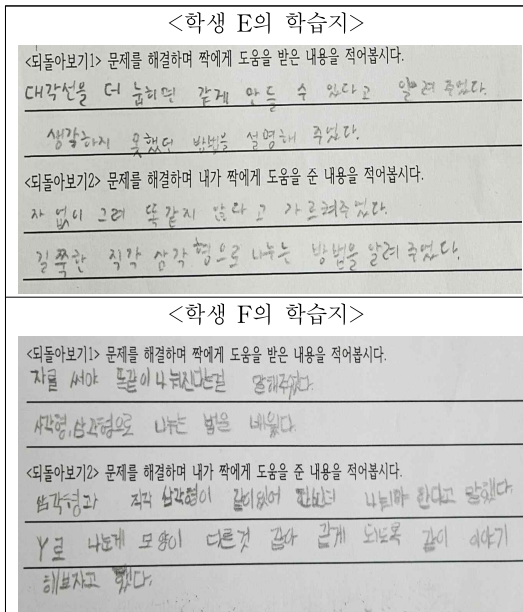 <학생 E의 학습지>
<되돌아보기1> 문제를 해결하며 짝에게 도움을 받은 내용을 적어봅시다.
대각선을 더 눕히면 같게 만들 수 있다고 알려 주었다.
생각하지 못했던 방법을 설명해 주었다.
<되돌아보기2> 문제를 해결하며 내가 짝에게 도움을 준 내용을 적어봅시다.
자 없이 그려 똑같지 않다고 가르쳐주었다.
길쭉한 직각 삼각형으로 나누는 방법을 알려 주었다.
<학생 F의 학습지>
<되돌아보기1> 문제를 해결하며 짝에게 도움을 받은 내용을 적어봅시다.
자를 써야 똑같이 나눠진다는걸 말해주었다.
사각형, 삼각형으로 나누는 법을 배웠다.
<되돌아보기2> 문제를 해결하며 내가 짝에게 도움을 준 내용을 적어봅시다.
삼각형과 직각 삼각형이 같이 있어 나눠야 한다고 말했다.
Y로 나눈게 모양이 다른것 같아 같게 되도록 같이 이야기
해보자고 했다.